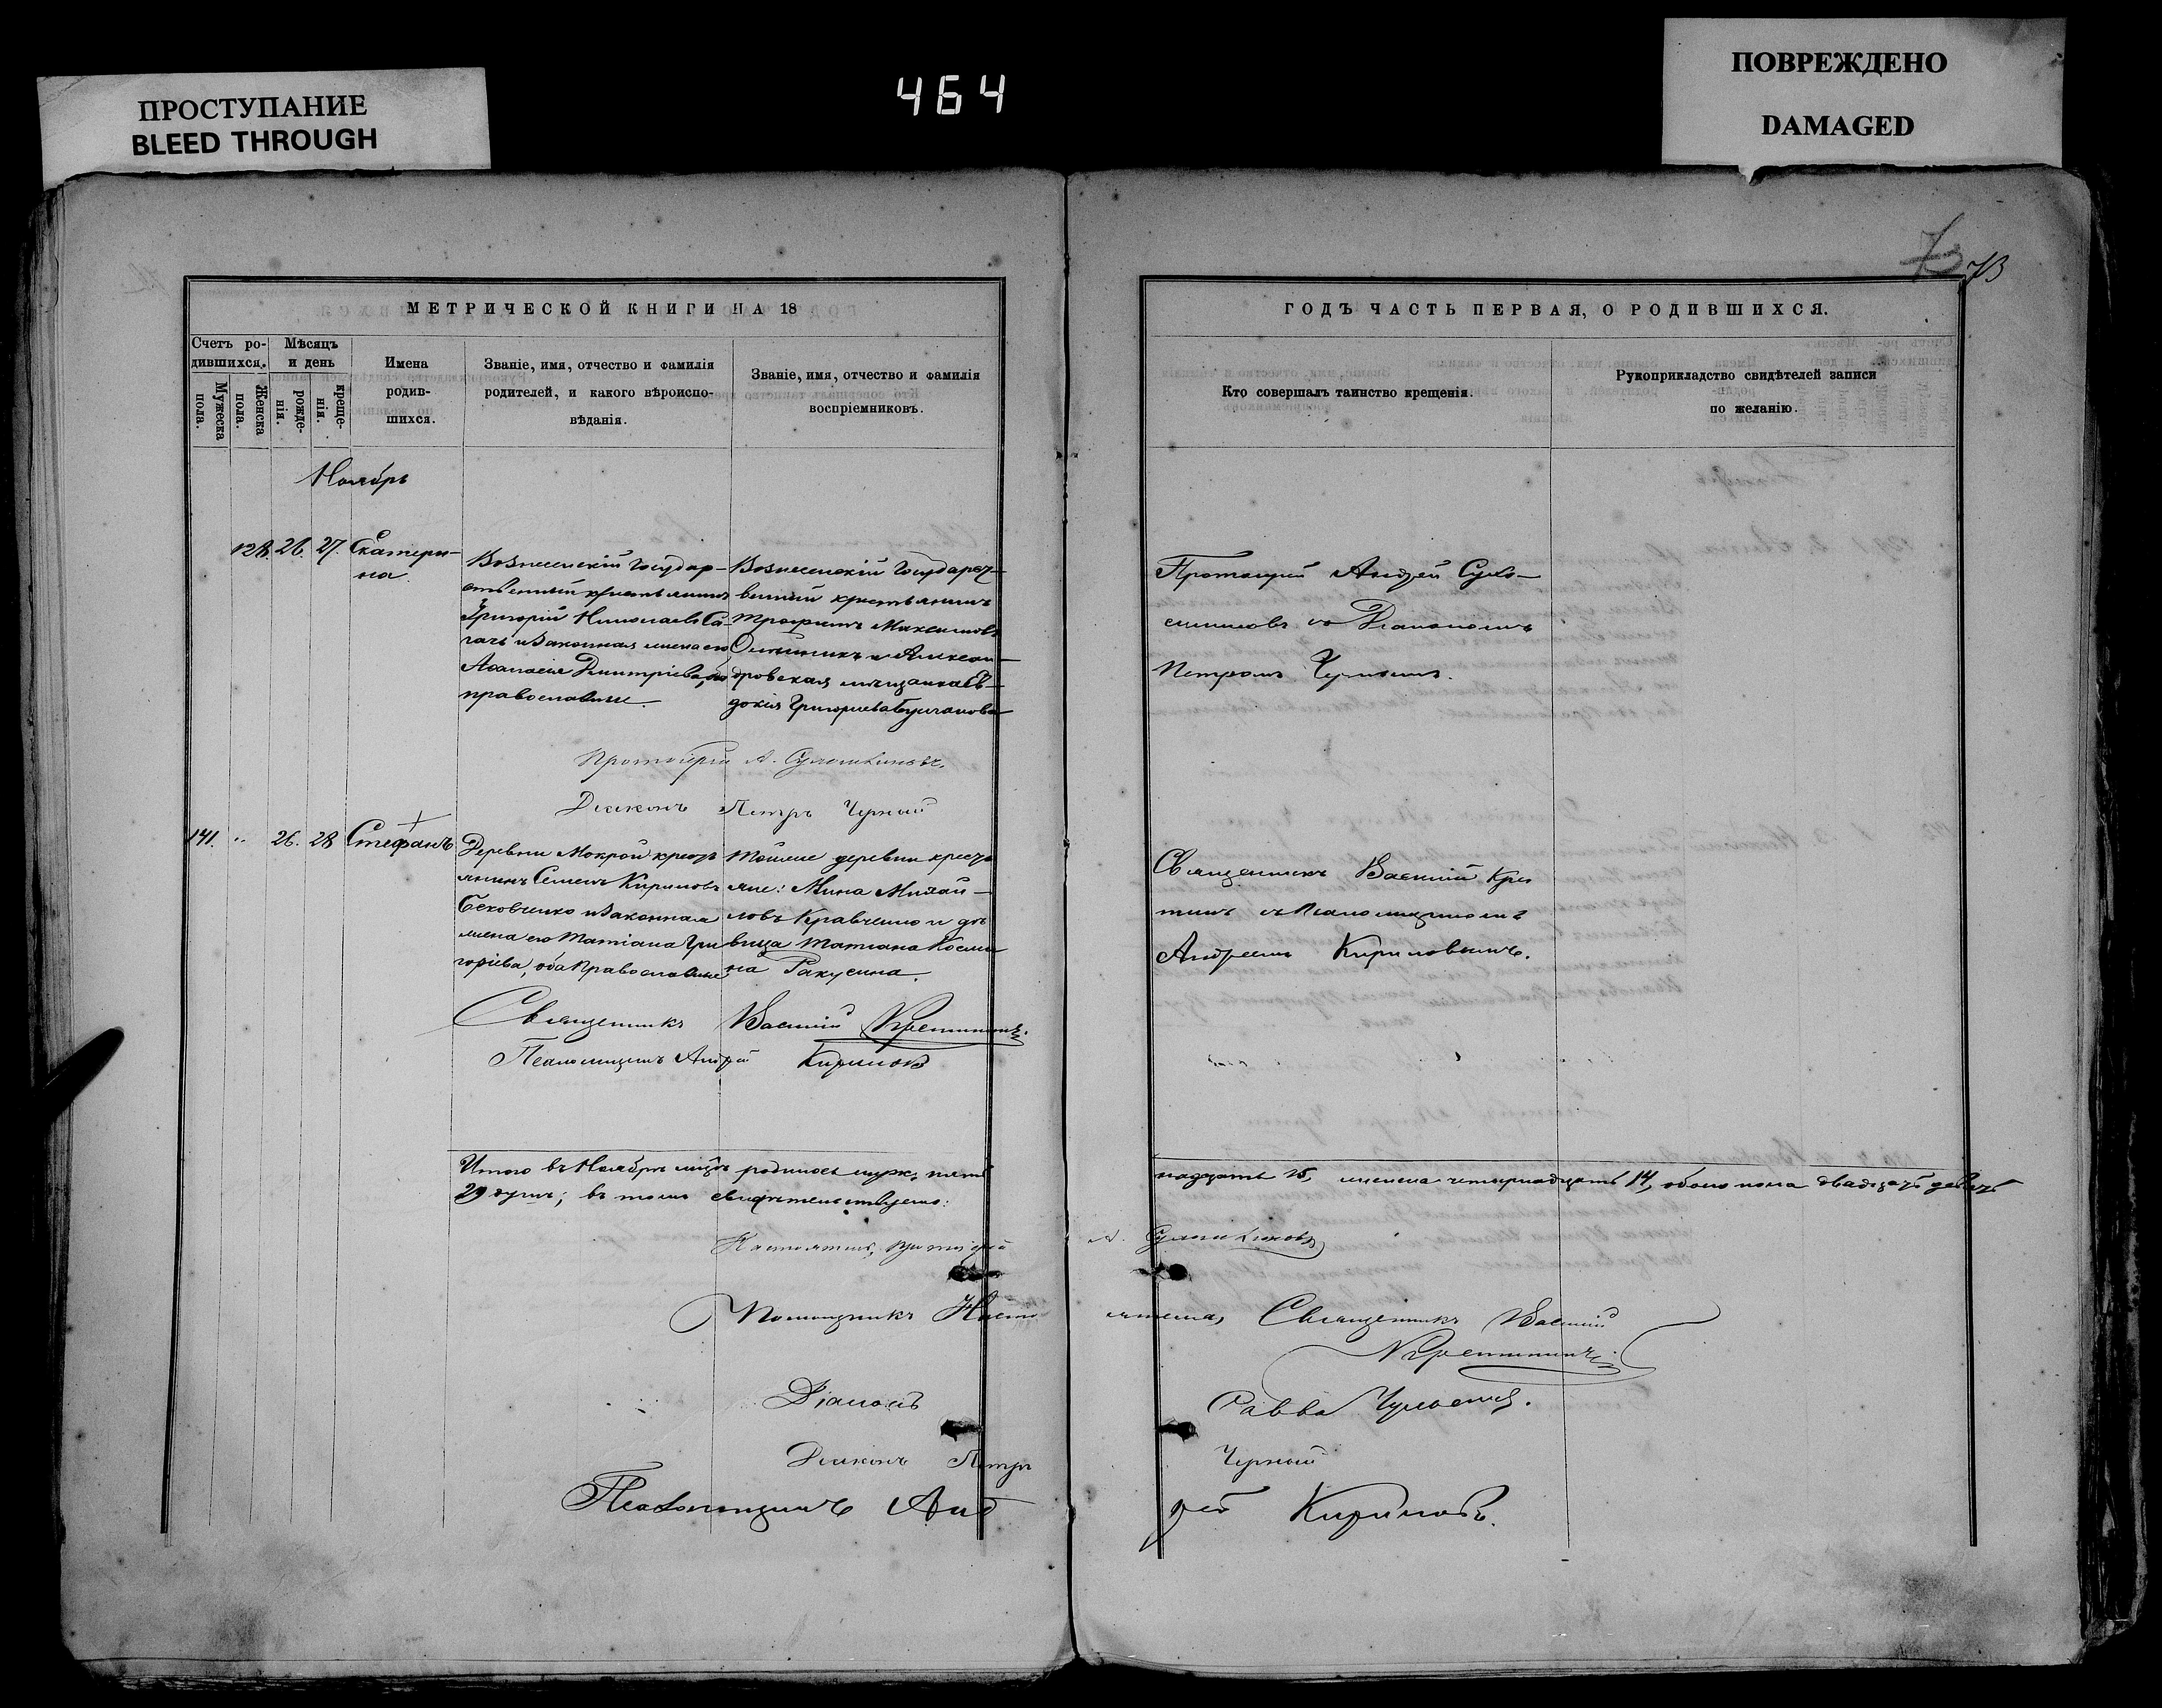 ПРОСТУПАНИЕ
BLEED THROUGH
464
ПОВРЕЖДЕНО
DAMAGED
73 73
МЕТРИЧЕСКОЙ КНИГИ НА 18
Счетъ ро-
дившихся.
Мужеска
пола.
Женска
пола.
Мѣсяцъ
и день
рожде-
нія.
креще-
нія.
Имена
родив-
шихся.
Званіе, имя, отчество и фамилія
родителей, и какого вѣроиспо-
вѣданія.
Званіе, имя, отчество и фамилія
воспріемниковъ.
Ноябрь
128. 26. 27. Екатери-
на.
Вознесенскій государ-
ственный крестьянинъ
Григорій Николаевъ Са-
гачь и законная жена его
Аѳанасія Димитріева, оба
православные.
Вознесенскій государст-
венный крестьянинъ
Трофимъ Максимовъ
и Алексан-
дровская мѣщанка Ев-
докія Григориева
Протоіерей А. Сулошниковъ.
Діаконъ Петръ Черный
141. " 26. 28 Стефанъ
Деревни Мокрой кресть
янинъ Семенъ Кириловъ
и законная
жена его Татіана Гри
горіева, оба православные
Тойже деревни кресть
яне: Мина Михай-
ловъ Кравченко и дѣ
вица Татіана Косми
на Ракусина.
Священникъ Василій Крестининъ.
Псаломщикъ Андрей Кириловъ
Итого въ Ноябрѣ мцѣ родилось муж. пят
29 душъ; въ томъ свидѣтельствуемъ:
Настоятель, Протоіерей
Помощникъ Насто
Діаконъ
Діаконъ Петръ
Псаломщикъ Анд
ГОДЪ ЧАСТЬ ПЕРВАЯ, О РОДИВШИХСЯ.
Кто совершалъ таинство крещенія.
Рукоприкладство свидѣтелей записи
по желанію.
Протоіерей Андрей Суло-
шниковъ съ Діакономъ
Петромъ Чернымъ.
Священникъ Василій Крес
тининъ съ Псаломщикомъ
Андреемъ Кириловымъ.
надцать 15, женска четырнадцать 14, обоего пола двадцать девять
А. Сулошниковъ
ятеля, Священникъ Василій
Крестининъ
Савва
Черный
рей Кириловъ.